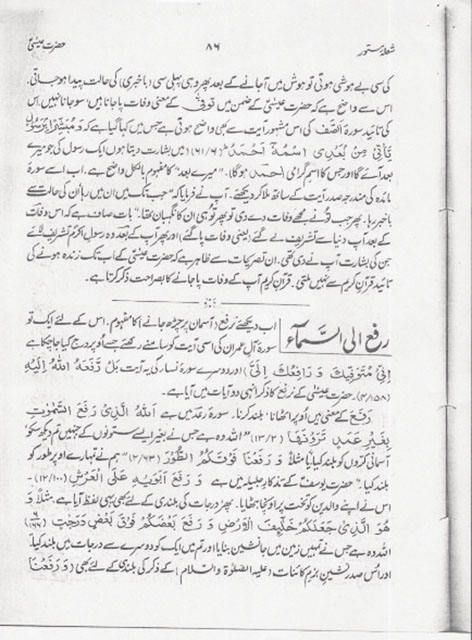 شعلۂ مستور ۸۶ حضرت عیسیٰؑ
کی سی بے ہوشی ہوتی تو ہوش میں آجانے کے بعد پھر وہی پہلی سی (باخبری) کی حالت پیدا ہو جاتی۔
اس سے واضح ہے کہ حضرت عیسیٰؑ کے ضمن میں توفی کے معنی وفات پا جانا ہیں، سو جانا نہیں۔ اس
کی تائید سورۃ الصّف کی اس مشہور آیت سے بھی واضح ہوتی ہے جس میں کہا گیا ہے کہ وَ مُبَشِّرًا بِرَسُوْلٍ
یَّاْتِیْ مِنْ بَعْدِی اسْمُہٗ اَحْمَدُ (۶۱/۶) میں بشارت دیتا ہوں ایک رسول کی جو میرے
بعد آئے گا اور جس کا اسمِ گرامی (احمد) ہوگا۔ "میرے بعد" کا مفہوم بالکل واضح ہے۔ اب اسے سورۂ
مائدہ کی مندرجہ صدر آیت کے ساتھ ملا کر دیکھئے۔ آپ نے فرمایا کہ "جب تک میں ان میں رہا ان کی حالت سے
باخبر رہا۔ پھر جب تو نے مجھے وفات دے دی تو پھر تو ہی ان کا نگہبان تھا۔" بات صاف ہے کہ اس وفات
کے بعد آپ دنیا سے تشریف لے گئے (یعنی وفات پا گئے) اور پھر آپ کے بعد وہ رسولِ اکرمؐ تشریف لائے
جن کی بشارت آپ نے دی تھی۔ ان تصریحات سے ظاہر ہے کہ حضرت عیسیٰؑ کے اب تک زندہ ہونے کی
تائید قرآنِ کریم سے نہیں ملتی۔ قرآنِ کریم آپ کے وفات پا جانے کا بصراحت ذکر کرتا ہے۔
رفع الی السّمآء
اب دیکھئے رفع (آسمان پر چڑھ جانے) کا مفہوم۔ اس کے لئے ایک تو
سورۂ آلِ عمران کی اسی آیت کو سامنے رکھئے جسے اوپر درج کیا جا چکا ہے
اِنِّیْ مُتَوَفِّیْکَ وَ رَافِعُکَ اِلَیَّ اور دوسرے سورۂ نساء کی یہ آیت بَلْ رَّفَعَہُ اللہُ اِلَیْہِ
(۴/۱۵۸) میں حضرت عیسیٰؑ کے رفع کا ذکر انہی دو آیات میں آیا ہے۔
رفع کے معنی ہیں اُوپر اٹھانا۔ بلند کرنا۔ سورۂ رعد میں ہے اَللہُ الَّذِیْ رَفَعَ السَّمٰوٰتِ
بِغَیْرِ عَمَدٍ تَرَوْنَہَا (۱۳/۲) "اللہ وہ ہے جس نے بغیر ایسے ستونوں کے جنہیں تم دیکھ سکو،
آسمانی کرّوں کو بلند کیا یا مثلاً وَ رَفَعْنَا فَوْقَکُمُ الطُّوْرَ (۲/۶۳) "ہم نے تمہارے اوپر طور کو
بلند کیا۔" حضرت یوسفؑ کے تذکارِ جلیلہ میں ہے وَ رَفَعَ اَبَوَیْہِ عَلَی الْعَرْشِ (۱۲/۱۰۰)۔
اس نے اپنے والدین کو تخت پر اونچا بٹھایا۔ پھر درجات کی بلندی کے لئے بھی یہی لفظ آیا ہے۔ مثلاً وَ
ھُوَ الَّذِیْ جَعَلَکُمْ خَلٰٓئِفَ الْاَرْضِ وَ رَفَعَ بَعْضَکُمْ فَوْقَ بَعْضٍ دَرَجٰتٍ
اللہ وہ ہے جس نے تمہیں زمین میں جانشین بنایا اور تم میں ایک کو دوسرے سے درجات میں بلند کیا۔
اور اُس صدر نشینِ بزمِ کائنات (علیہ الصلوٰۃ والسلام) کے ذکر کی بلندی کے لئے بھی (وَ رَفَعْنَا